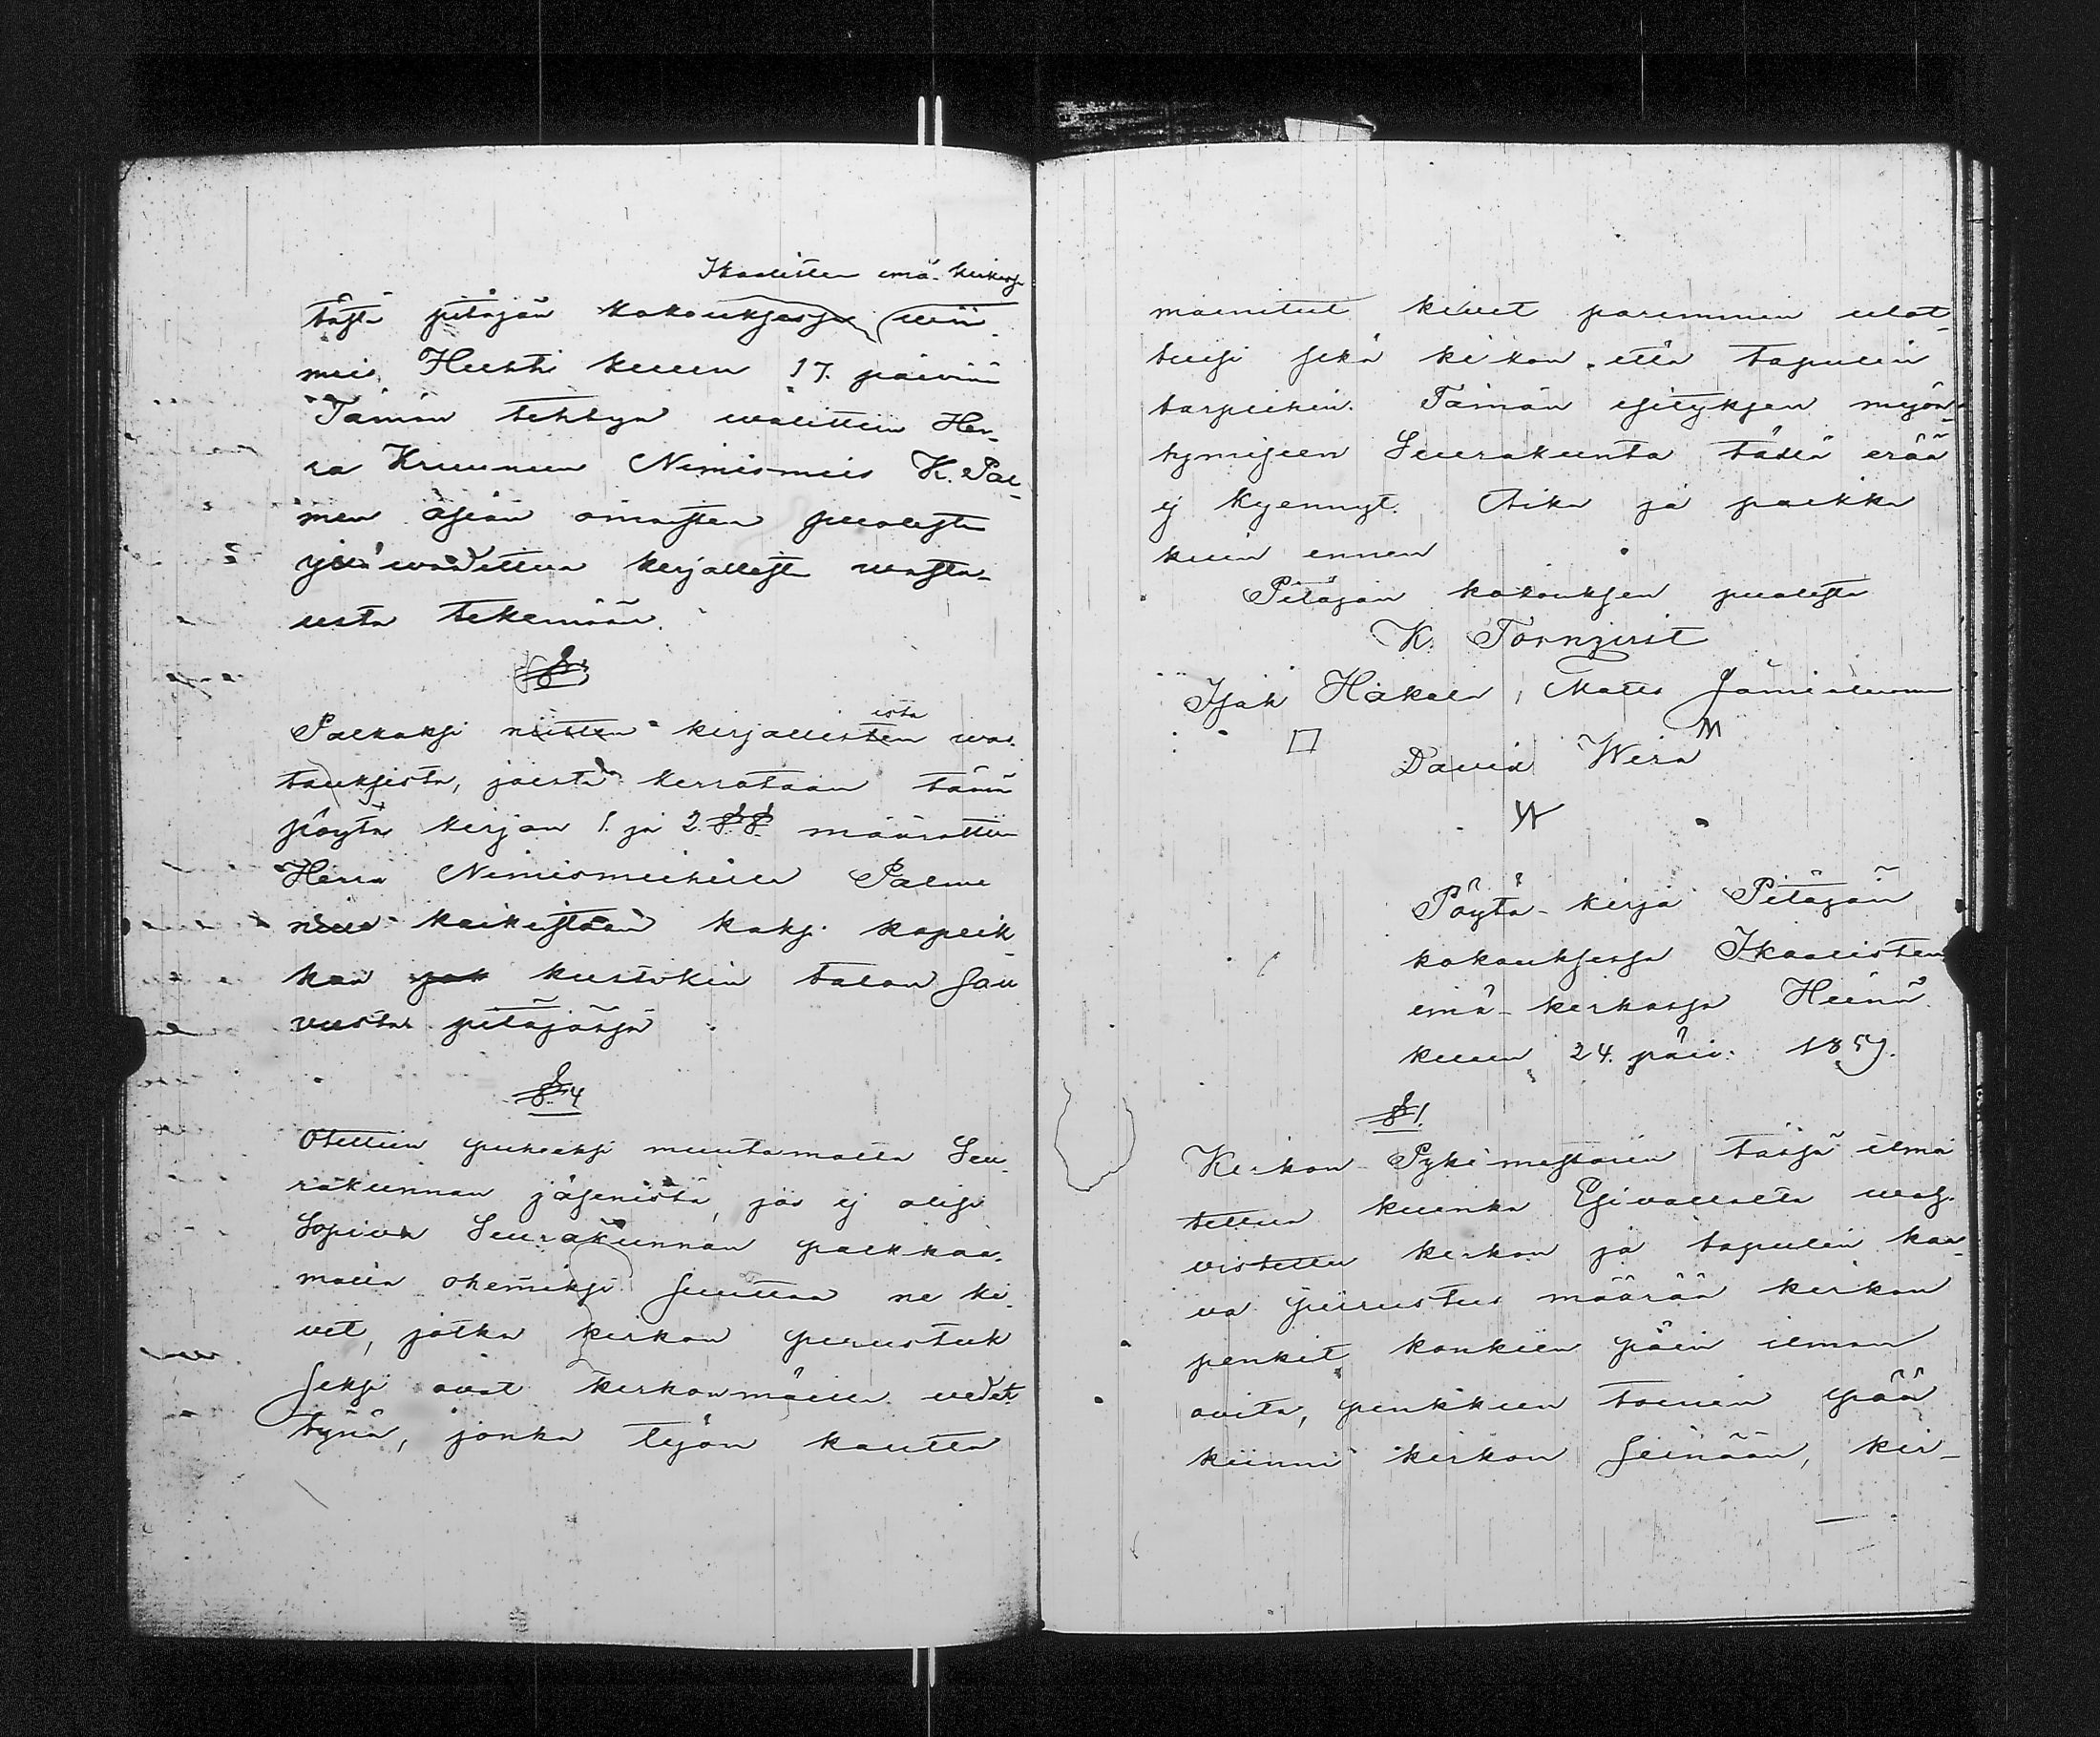 Ikaalisten emä-kirkosa
tästä pitäjän kokouksessa wii-
meis Huhti kuun 17. päivänä
Tämän tehtyä walittiin Her-
ra Kruunun Nimismies K. Pal-
men asian omaisten puolesta
yllä wadittua kirjallista wasta-
usta tekemään.
§ 3
Palkaksi niitten kirjallisten ista was-
tauksista, joista kerrotaan tämä
pöytä kirjan 1. ja 2. §§ määrättiin
Herra Nimismiehelle Palme
niin kaikistaan kaksi kopeik-
kaa jok kustakin talon sau
vusta pitäjäsä
§ 4
Otettiin puheeksi muutamalta Seu-
rakunnan jäsenistä, jos ej olisi
Sopiva Seurakunnan palkkaa-
malla ohemiksi suuttaa ne ki-
vet, jotka kirkon perustuk
seksi ovat kirkonmäelle vedet-
tynä, jonka työn kautta
mainitut kivet paremmin ulot-
tuisi sekä kirkon että tapulin
tarpeihin. Tämän esityksen myön-
tymiseen Seurakunta tällä erää
ej kyennyt. Aika ja paikka
kuin ennen
Pitäjän kokouksen puolesta
K. Törnqvist
Isak Hakala, Matts Jämialuoma
M
David Wira
W
Pöytä-kirja Pitäjän
kokouksessa Ikaalisten
emä-kirkossa Heinä
kuun 24. päiv: 1859.
§ 1.
Kirkon Pykimestarin tässä ilmi
tettua kuinka Esivallalta wah-
vistettu kirkon ja tapulin kaa-
va piirustus määrää kirkon
penkit konkiin päin ilman
ovita, penkkien toinen pää
kiinni kirkon seinään, kir-